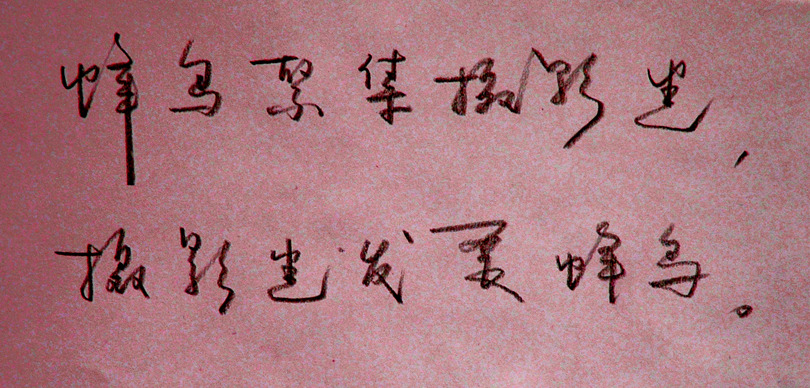 蜂鸟聚集摄影迷，
摄影迷发美蜂鸟。